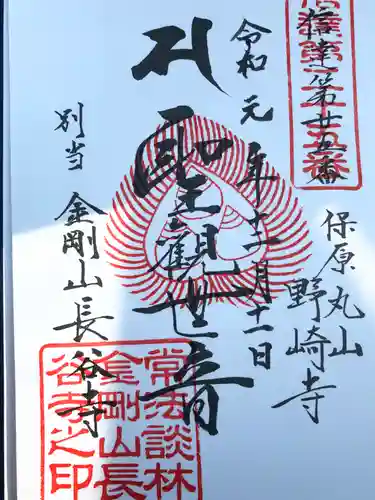 信達第廿五番
保原 丸山
野崎寺
令和元年十二月十一日
聖観世音
別当 金剛山長谷寺
常法談林
金剛山長
谷寺之印